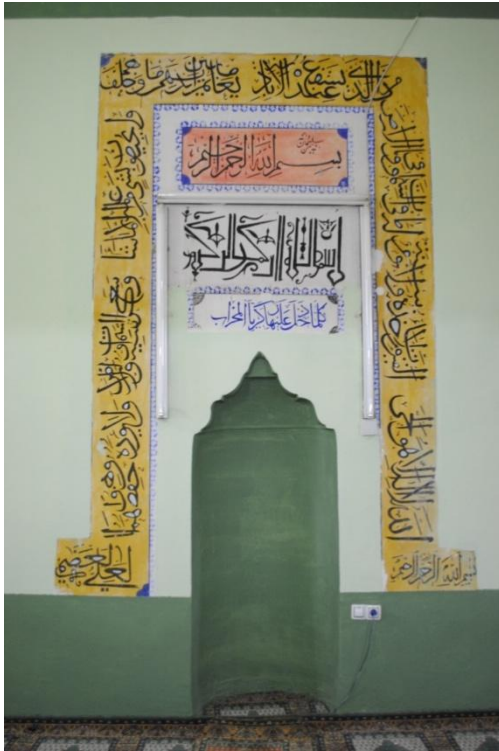 بسم الله الرحمن الرحيم
الله لا اله الا هو الحى
القيوم لا تأخذه سنة ولا نوم له ما فى السموات وما فى الارض
من ذا الذى يشفع عنده الا باذنه يعلم ما بين ايديهم وما خلفهم
ولا يحيطون بشئ من علمه الا بما شاء وسع كرسيه السموات والارض ولا يؤده حفظهما وهو
العلى العظيم
بسم الله الرحمن الرحيم
بسم الله الرحمن الرحيم
كلما دخل عليها زكريا المحراب